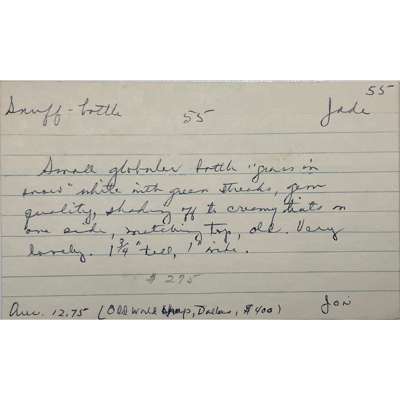 55
Snuff-bottle 55 Jade
Small globular bottle "grass in
snow" white with green streaks, gem
quality, shading off to creamy tints on
one side, matching top, old. Very
lovely. 1 3/4" tall, 1" wide.
$ 295
12.75 (Old World Shop, Dallas, $400) Jon